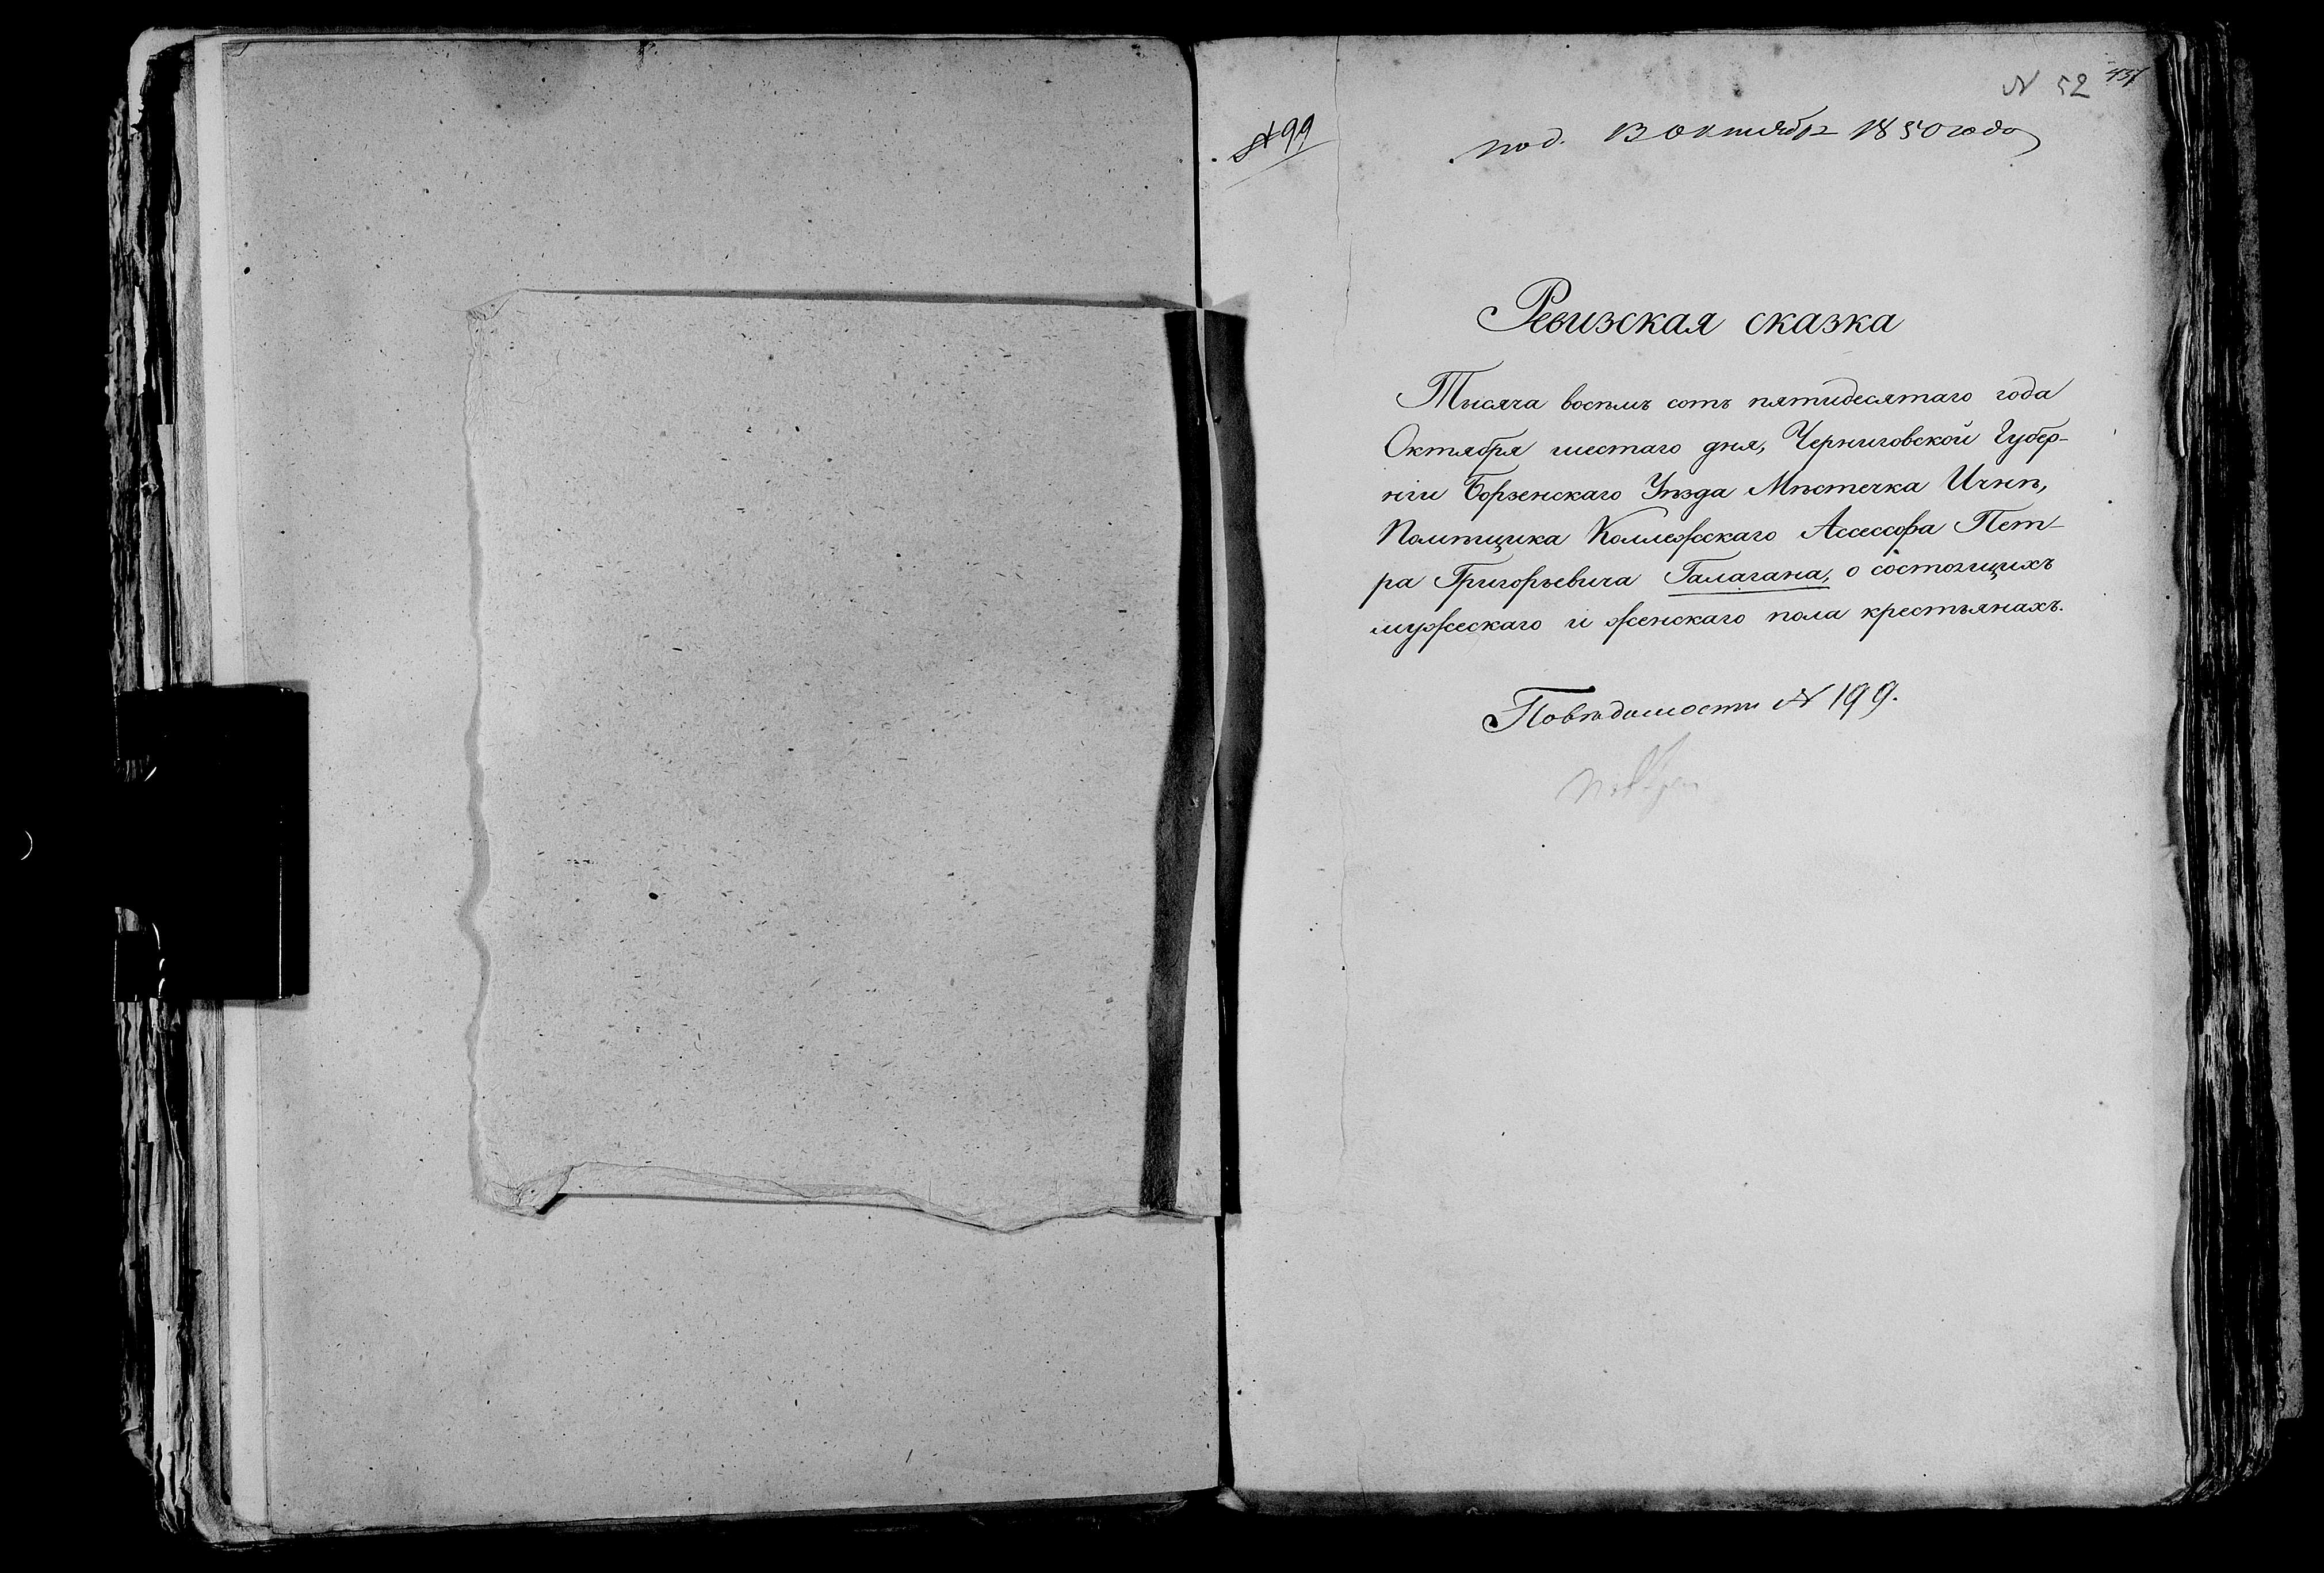 N 52 437
№ 99
под. 13 Октября 1850 года
Ревизская сказка
Тысяча восемь сотъ пятидесятаго года
Октября шестаго дня, Черниговской Губер-
ніи Борзенскаго Уѣзда Мѣстечка Ичнѣ,
Помѣщика Коллежскаго Ассессора Пет-
ра Григорьевича Галагана, о состоящихъ
мужескаго и женскаго пола крестьянахъ.
Повѣдомости № 199.